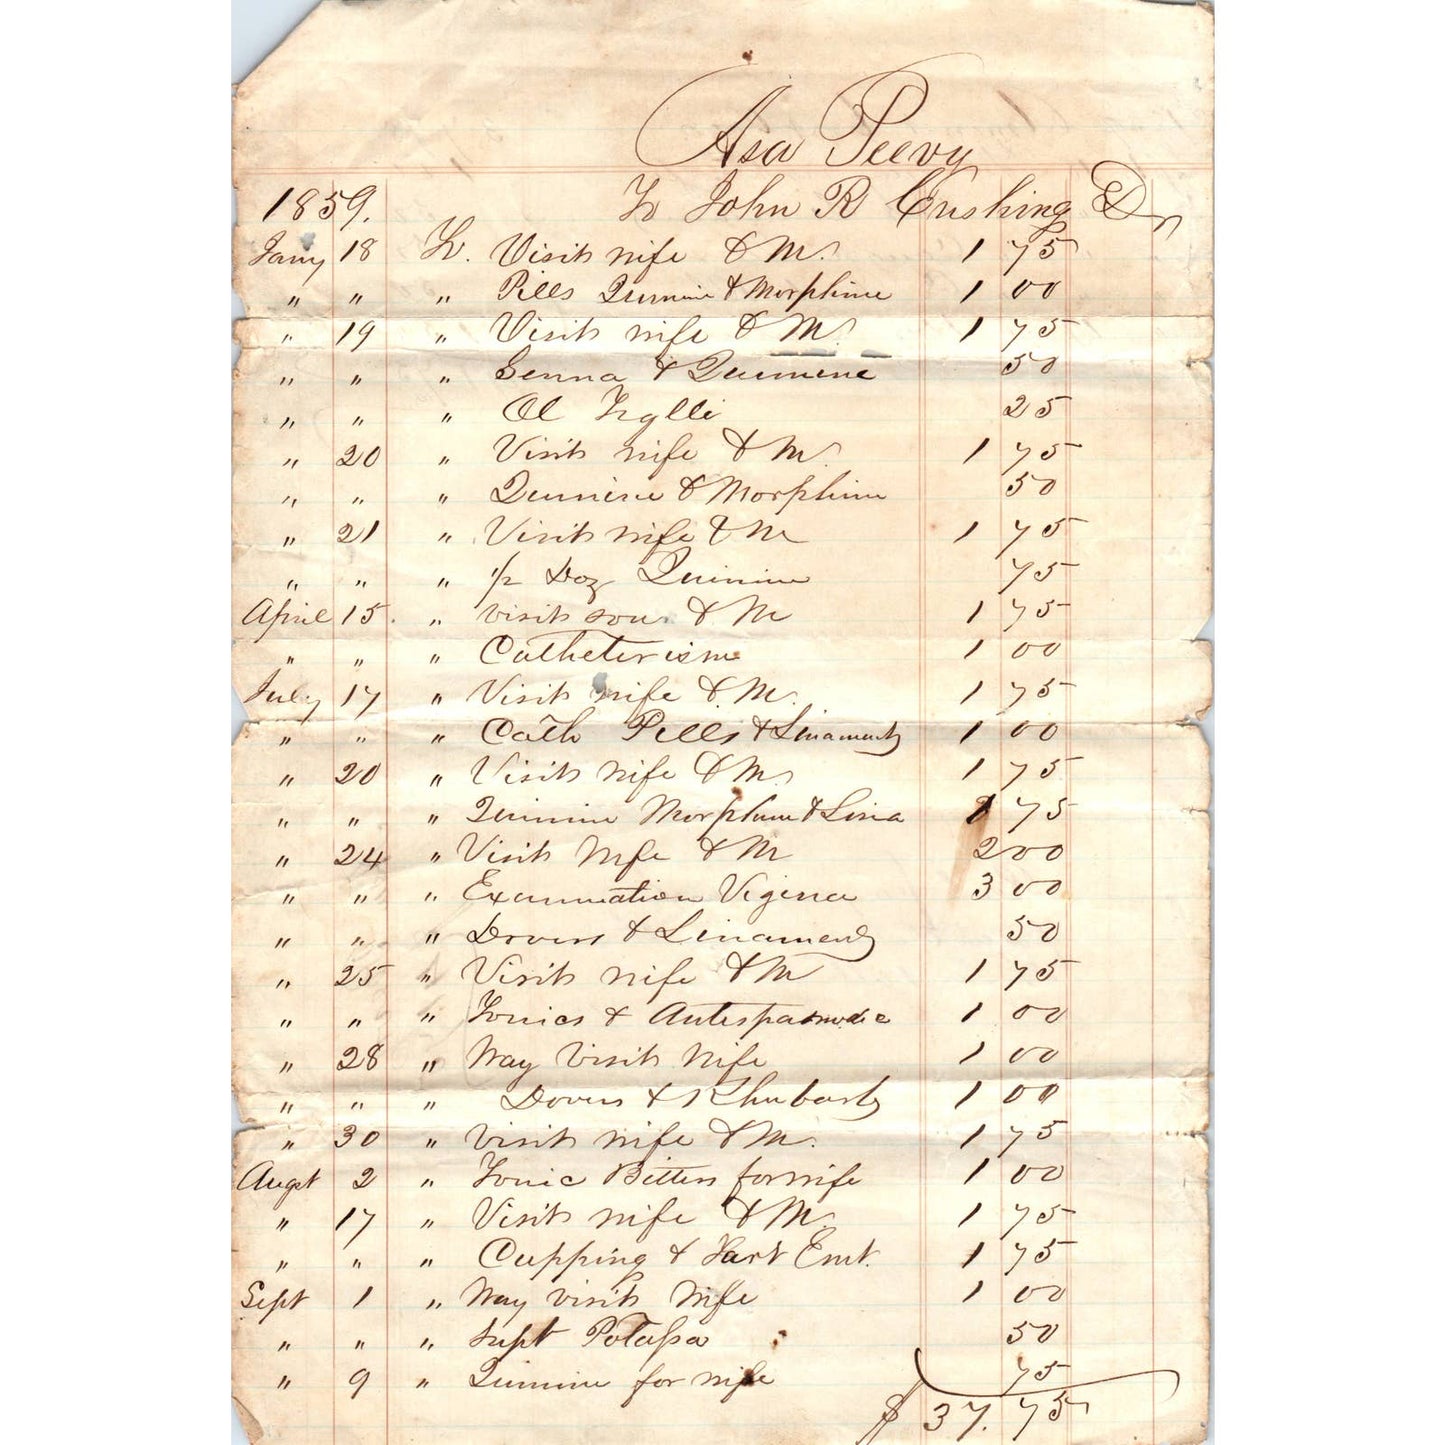 Asa Peevy
1859. To John R Cushing Dr
Jany 18 To. Visit wife & M. 1 75
" " " Pills Quinine & Morphine 1 00
" 19 " Visit wife & M. 1 75
" " " Senna & Quinine 50
" " " Ol Tiglli 25
" 20 " Visit wife & M. 1 75
" " " Quinine & Morphine 50
" 21 " Visit wife & M 1 75
" " " 1/2 Doz Quinine 75
April 15. " visit son & M 1 75
" " " Catheterism 1 00
July 17 " Visit wife & M. 1 75
" " " Cath Pills & Linament 1 00
" 20 " Visit wife & M. 1 75
" " " Quinine Morphine & Lina 1 75
" 24 " Visit wife & M 2 00
" " " Examination Vigina 3 00
" " " Dovers & Linament 50
" 25 " Visit wife & M 1 75
" " " Tonics & Antespasmodic 1 00
" 28 " Way Visit wife 1 00
" " " Dovers & Rhubarb 1 00
" 30 " visit wife & M. 1 75
Augst 2 " Tonic Bitters for wife 1 00
" 17 " Visit wife & M. 1 75
" " " Cupping & Tart Emt. 1 75
Sept 1 " Way visit wife 1 00
" " " Supt Potassa 50
" 9 " Quinine for wife 75
$ 37.75